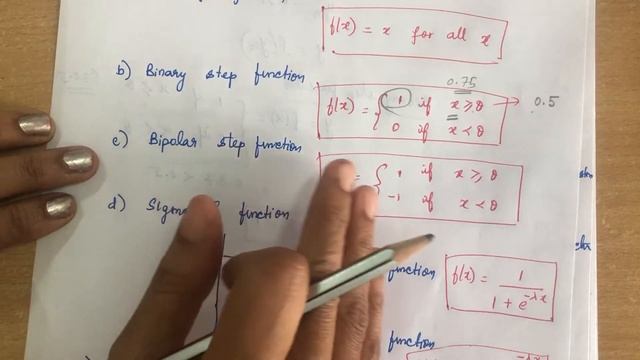 f(x) = x for all x
b) Binary step function
0.75
f(x) = { 1 if x ≥ θ → 0.5
0 if x < θ
c) Bipolar step function
= { 1 if x ≥ θ
-1 if x < θ
d) function
function f(x) = 1 / 1 + e^-λx
function